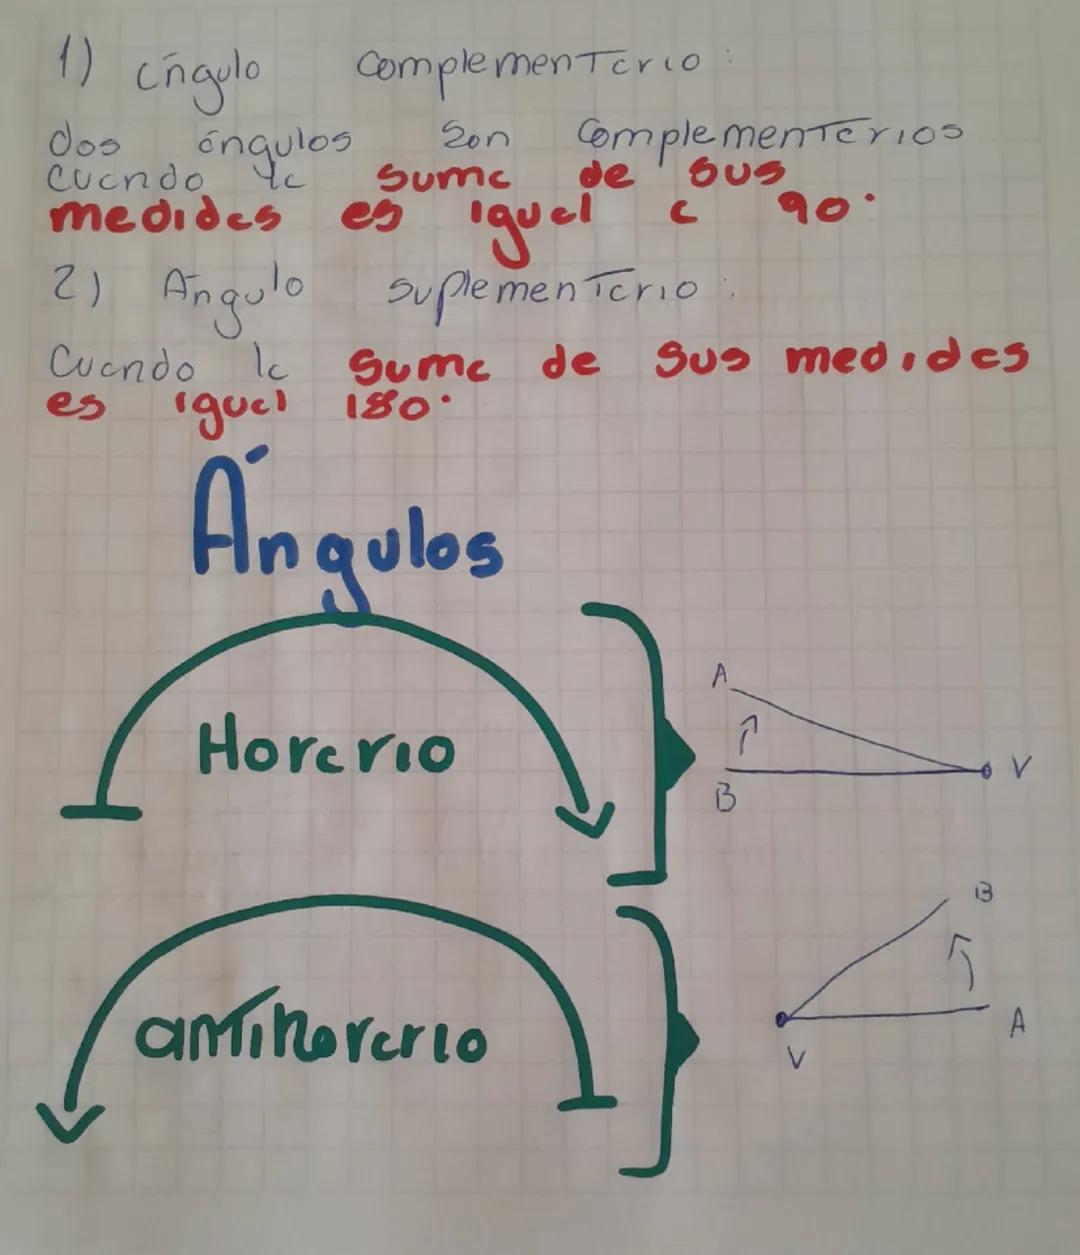 1) ángulo complementario:
dos ángulos son complementarios
cuando la suma de sus
medidas es igual a 90°
2) Ángulo suplementario:
Cuando la suma de sus medidas
es igual 180°
Ángulos
Horario
A
B
V
antihorario
B
A
V